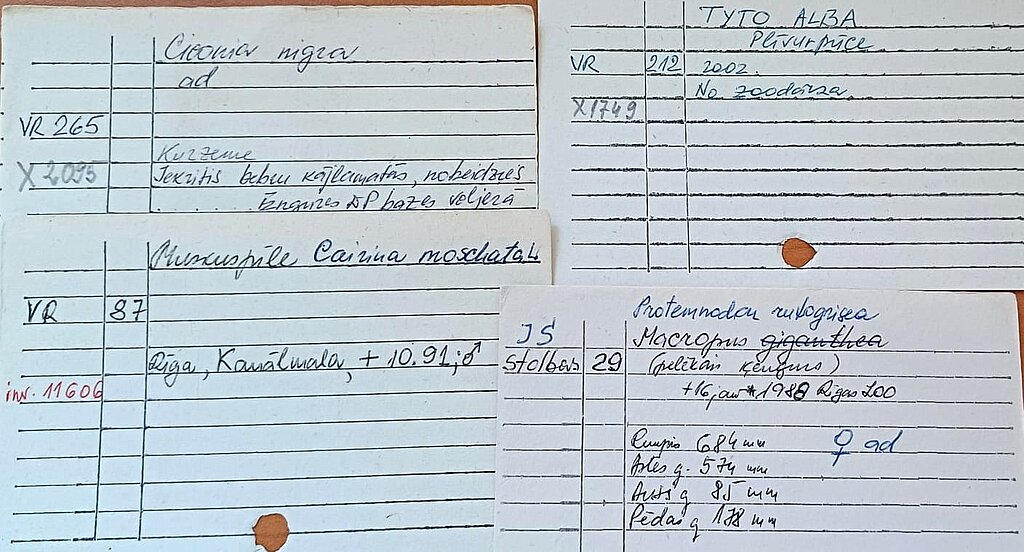 Ciconia nigra
ad
VR 265
Kurzeme
X 2095 Iekritis bebru kājlamatās, nobeidzies
Engures DP bazes voljerā
TYTO ALBA
Plīvurpūce
VR 212 2002.
No zoodārza
X1749
Muskuspīle Cairina moschata L
VR 87
Rīga, Kanālmala, + 10.91; ♂
inv. 11606
Protemnodon rufogrisea
JS Macropus giganthea
Stolbovs 29 (pelēkais ķengurs)
+16 jan 1988 Rīgas ZOO
Rumpis 684 mm ♀ ad
Astes g. 574 mm
Auss g 85 mm
Pēdas g 178 mm